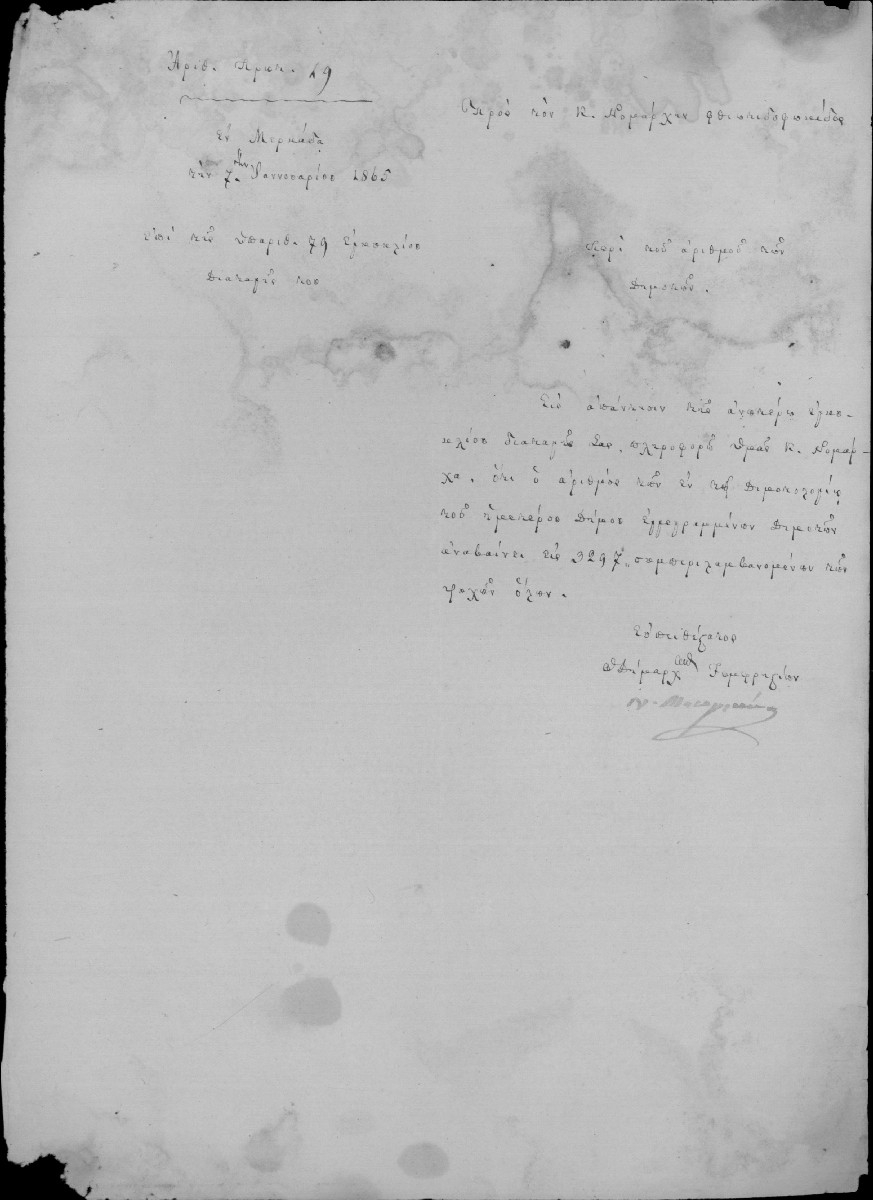 Ἀριθ. Πρωτ. 19
Ἐν Μερκάδα
τὴν 7 ην Ἰαννουαρίου 1865
Ἐπὶ τῆς ὑπαριθ. 79 ἐγκυκλίου
Διαταγῆς του
Πρὸς τὸν Κ. Νομάρχην Φθιωτιδοφωκίδος
Περὶ τοῦ ἀριθμοῦ τῶν
Δημοτῶν.
Εἰς ἀπάντησιν τῆς ἀνωτέρω ἐγκυ-
κλίου διαταγῆς Σας, πληροφορῶ Ὑμᾶς Κ. Νομάρ-
χα, ὅτι ὁ ἀριθμὸς τῶν ἐν τῷ Δημοτολογίῳ
τοῦ ἡμετέρου Δήμου ἐγγεγραμμένων Δημοτῶν
ἀναβαίνει εἰς 3297, συμπεριλαμβανομένων τῶν
ψυχῶν ὅλων.
Εὐπειθέστατος
Ὁ Δήμαρχος Τυμφρηστίων